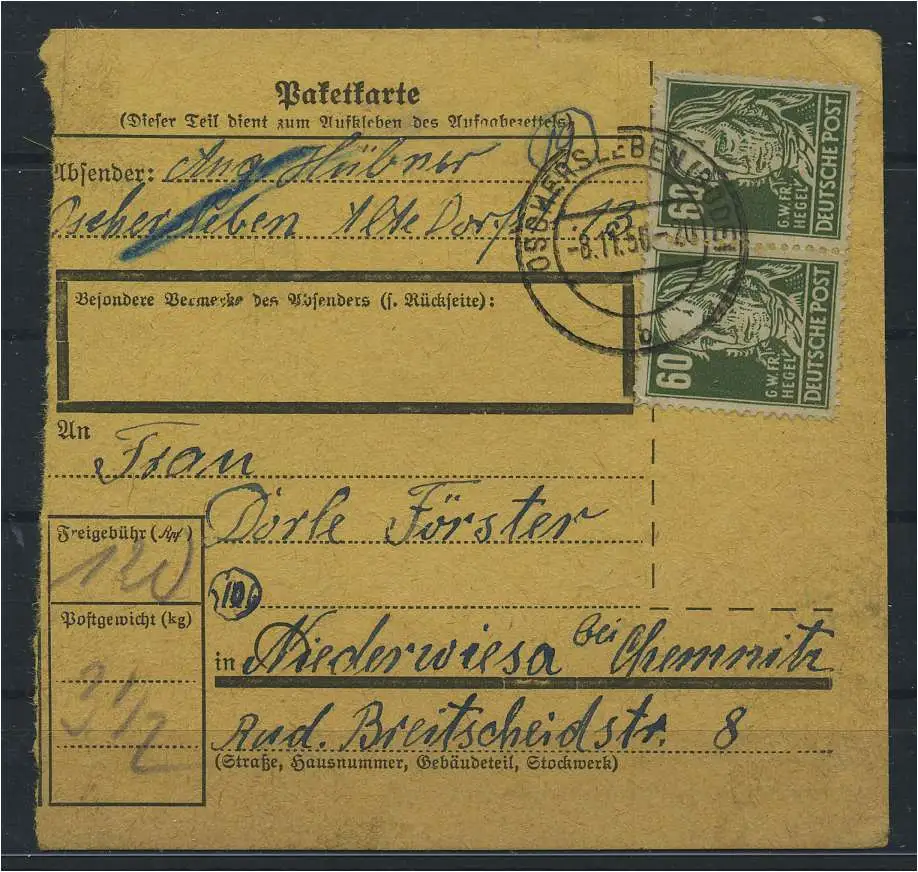 Paketkarte
(Dieser Teil dient zum Aufkleben des Aufgabezettels)
19
Absender: Aug. Hübner
Oschersleben Alte Dorfstr. 13
OSCHERSLEBEN (BODE)
-8.11.50-20
b
60
G.W.FR. HEGEL
DEUTSCHE POST
60
G.W.FR. HEGEL
DEUTSCHE POST
Besondere Vermerke des Absenders (s. Rückseite):
An
Frau
Dorle Förster
Freigebühr (Rpf)
120
10
Postgewicht (kg)
3 1/2
in Niederwiesa bei Chemnitz
Rud. Breitscheidstr. 8
(Straße, Hausnummer, Gebäudeteil, Stockwerk)